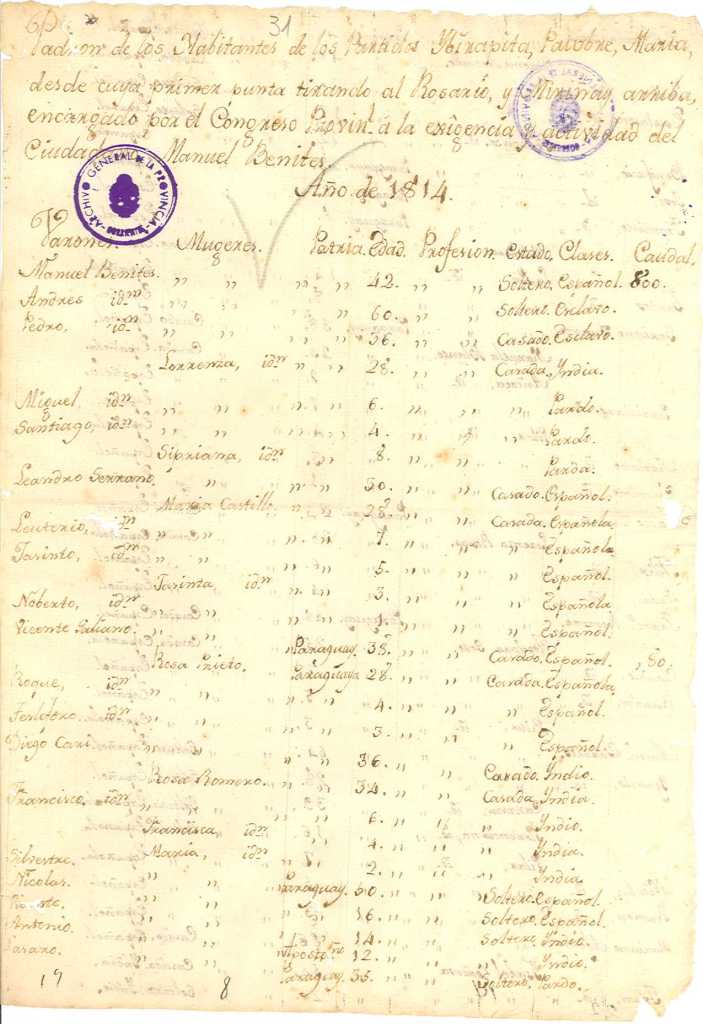 60 31
Padron de los Habitantes de los Partidos Ybirapita, Paiubre, Maria,
desde cuya primer punta tirando al Rosario, y Miriñay arriba,
encargado por el Congreso Provinl. a la exigencia y actividad del
Ciudad Manuel Benites.
ARCHIVO GENERAL DE LA PROVINCIA - CORRIENTES
Año de 1814.
Varones Mugeres. Patria. Edad. Profesion. estado. Clases. Caudal.
Manuel Benites. " " " " 42. " " Soltero. Español. 800.
Andres idm " " " " 60. " " Soltero. Esclavo.
Pedro, idm " " " " 56. " " Casado. Esclavo.
Lorrenza, idm " " 28. " " Casada. Yndia.
Miguel, idm " " " " 6. " " " Pardo.
Santiago, idm " " " " 4. " " " Pardo.
Sipriana, idm " " 8. " " Parda.
Leandro Serrano. " " " 50. " " Casado. Español.
Maria Castillo, " " 28. " " Casada. Española,
Leuterio, idm " " " " 7. " " " Española
Jasinto, idm " " " " 5. " " " Español.
Jasinta, idm " " 3. " " " Española
Noberto, idm " " " " 1. " " " Español.
Vicente Galiano. " " Paraguay. 38. " " Casado. Español. " 80.
Rosa Prieto. Paraguaya 28. " " Casada. Española,
Roque, idm " " " " 4. " " " Español.
idm " " " " 3. " " " Español.
Diego Cari. " " " 36. " " Casado. Yndio.
Rosa Romero. " " 34. " " Casada. Yndia.
Francisco, idm " " " " 6. " " " Yndio.
Francisca, idm " " 4. " " " Yndia.
Maria, idm " " 2. " " " Yndia
Silvestre. " " Paraguay. 50. " " Soltero. Español.
Nicolas. " " " 16. " " Soltero. Español.
" " " 14. " " Soltero. Yndio.
Antonio. " " 12. " " " Yndio.
" " Paraguay. 35. " " Soltero. Pardo.
19 8